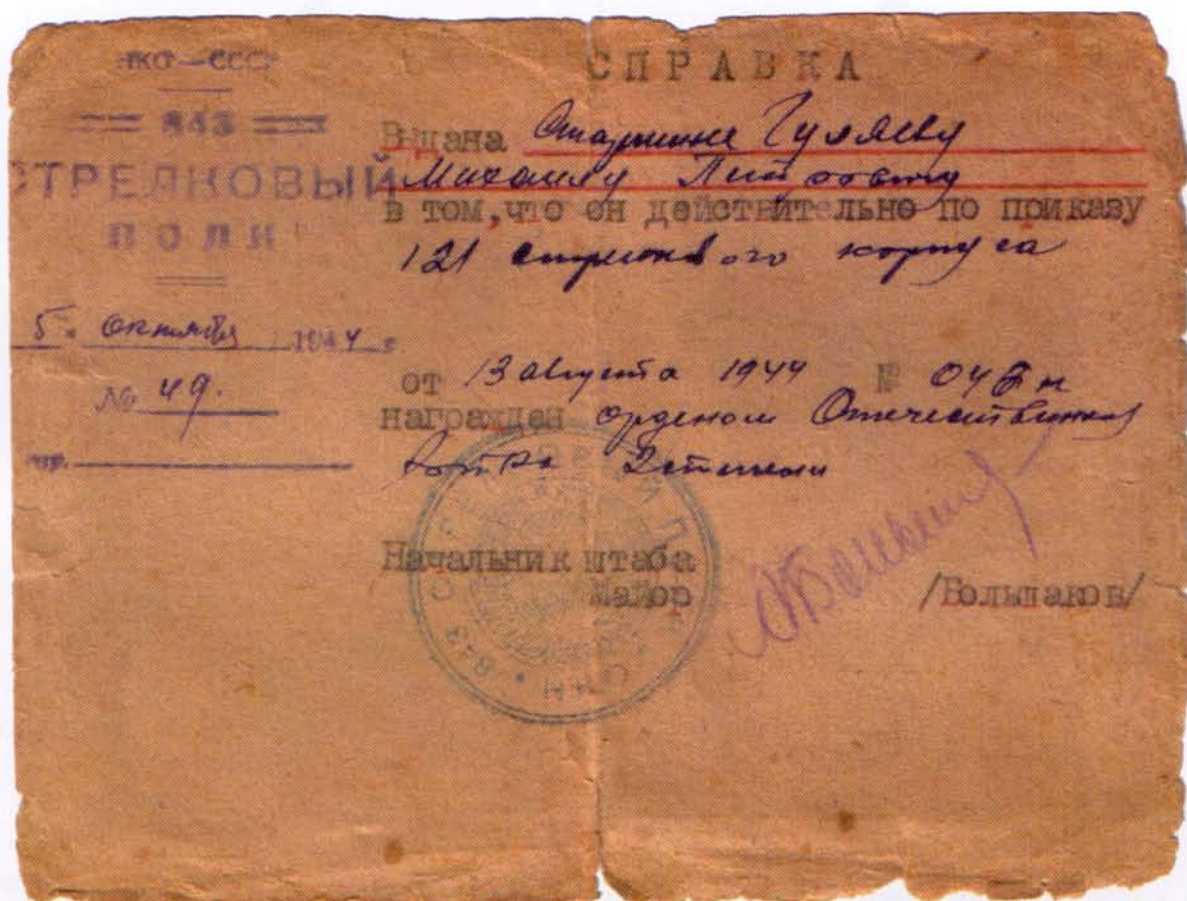 НКО — СССР
843
СТРЕЛКОВЫЙ
ПОЛК
5. октября 1944 г.
№ 49.
СПРАВКА
Выдана Старшине Гуляеву
Михаилу Петровичу
в том, что он действительно по приказу
121 стрелкового корпуса
от 13 августа 1944 №
награжден орденом Отечественной
2 степени
Начальник штаба
Майор /Большаков/
843